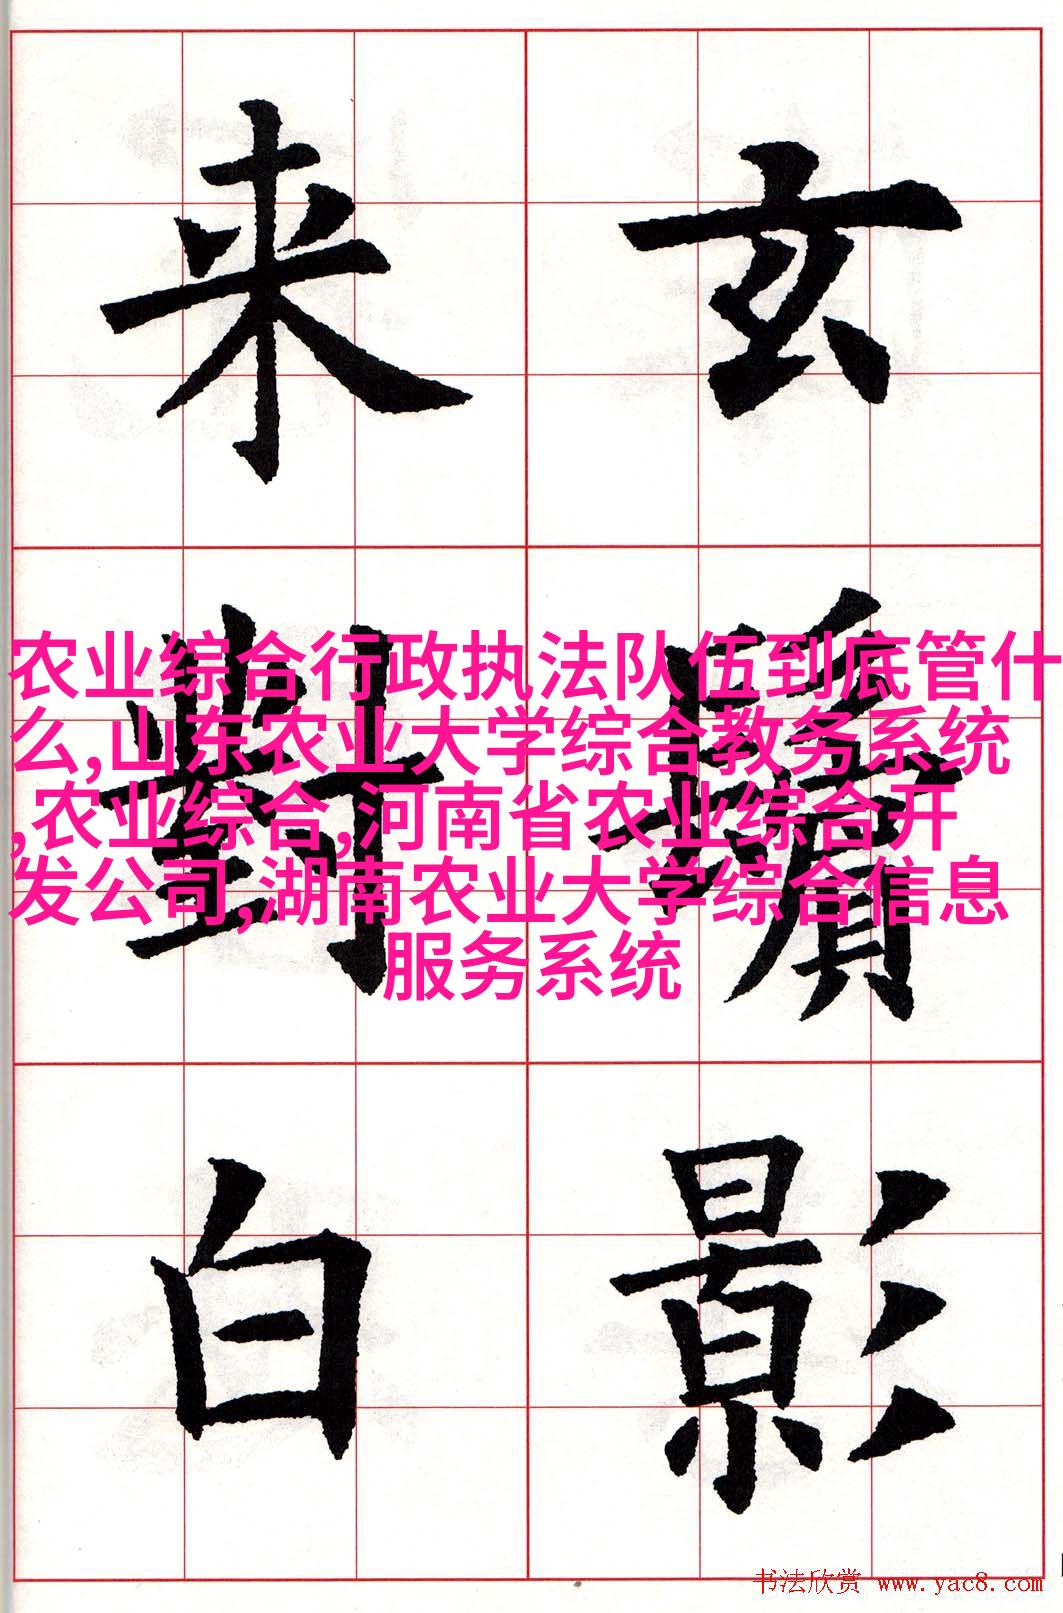 玄鬢影
来對白
农业综合行政执法队伍到底管什
么,山东农业大学综合教务系统
,农业综合,河南省农业综合开
发公司,湖南农业大学综合信息
服务系统
书法欣赏 www.yac8.com